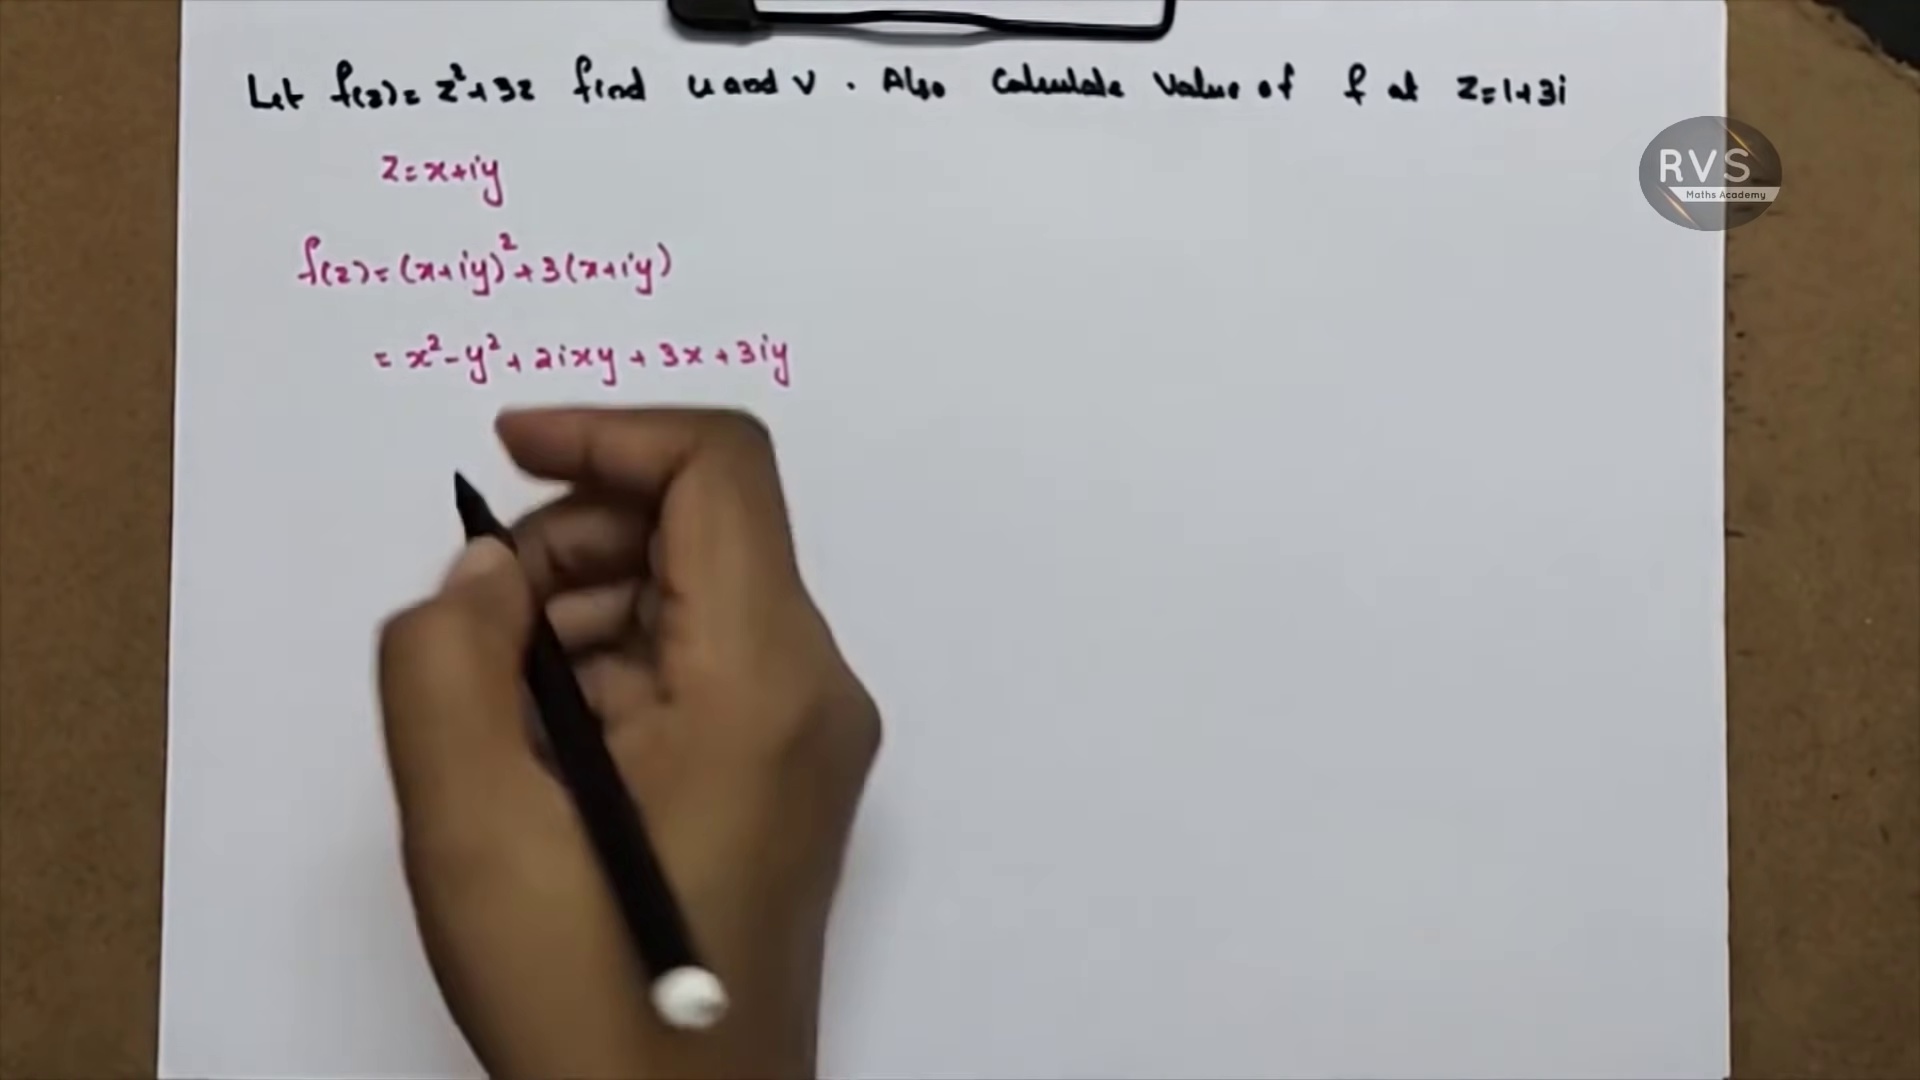 Let f(z)= z²+3z find u and v . Also Calculate Value of f at z=1+3i
RVS
Maths Academy
z=x+iy
f(z)=(x+iy)²+3(x+iy)
= x²-y²+2ixy+3x+3iy